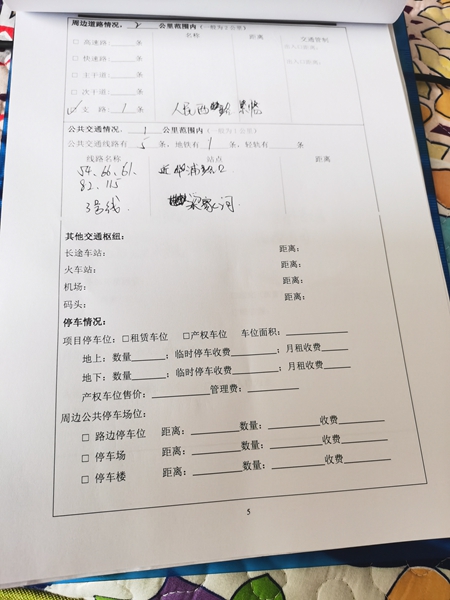 周边道路情况。2 公里范围内（一般为2公里）
名称 距离 交通管制
□ 高速路：____条
□ 快速路：____条
□ 主干道：____条
□ 次干道：____条
✓ 支 路：1条 人民西路
公共交通情况。1 公里范围内（一般为1公里）
公共交通线路有 5 条、地铁有 1 条，轻轨有 条
线路名称 站点 距离
54、66、61、
82、115
3号线 梁家河
其他交通枢纽：
长途车站： 距离：
火车站： 距离：
机场： 距离：
码头： 距离：
停车情况：
项目停车位：□租赁车位 □产权车位 车位面积：________
地上：数量______；临时停车收费______；月租收费______
地下：数量______；临时停车收费______；月租收费______
产权车位售价：________ 管理费：________
周边公共停车场位：
□ 路边停车位 距离：________数量：________收费________
□ 停车场 距离：________数量：________收费________
□ 停车楼 距离：________数量：________收费________
5